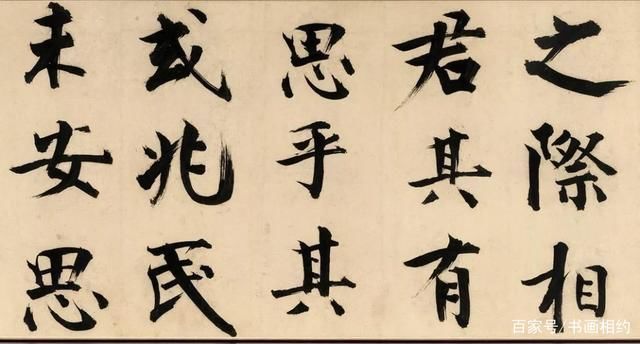 之際相
君其有
思乎其
或兆民
未安思
百家号/书画相约